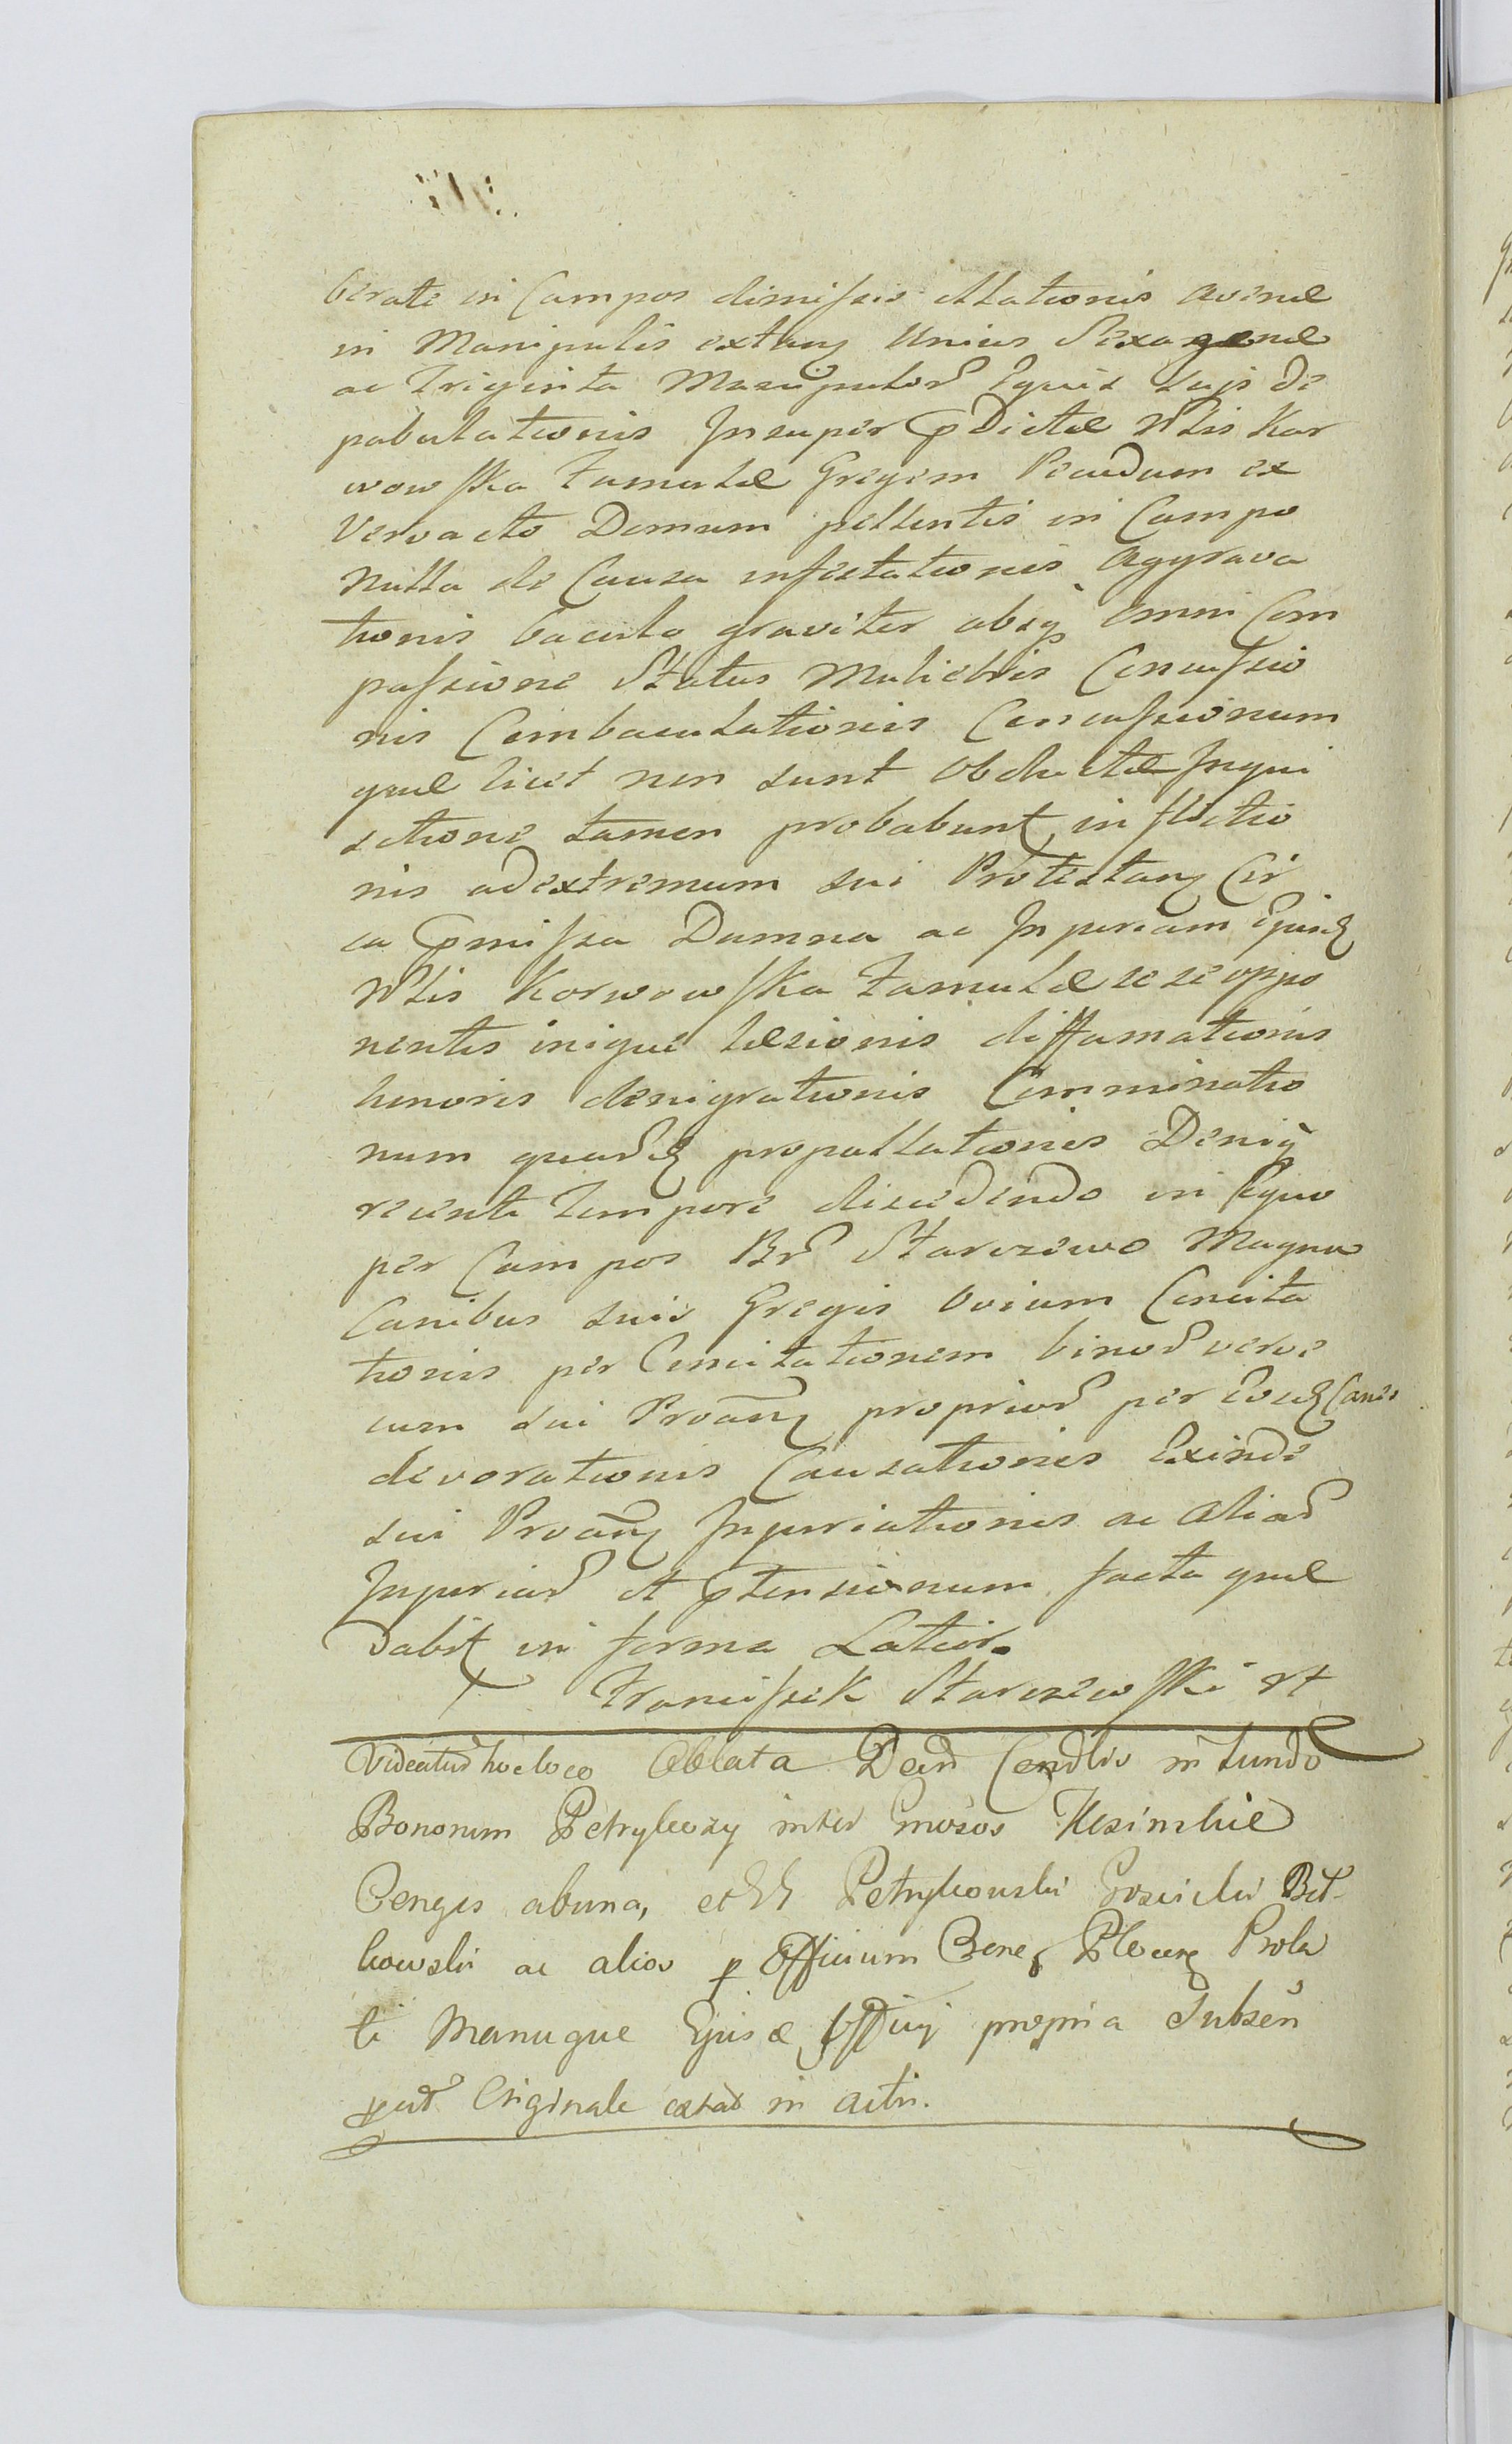 berate in Campos dimissis illationis avenæ
in Manipulis extang Unius Sexagenæ
ac Triginta Manipulor Equis suis de
pabulationis Insuper pdictæ Nblis Kar
wowska Famulæ Gregem Pecudum ex
Vervacto Domum pellentis in Campo
Nulla de Causa infestationis Aggrava
tionis baculo graviter absq omni Com
passione Status Muliebris Concussio
nis Combaculationis Concussionum
quæ licet non sunt obductæ Inqui
sitione tamen probabunt inflictio
nis ad extremum sui Protestang Cir
ca pmissa Damna ac Injuriam Ejusd
Nblis Korwowska Famulæ sese oppo
nentis inique læsionis diffamationis
honoris denigrationis Comminatio
num quard propallationis Deniq
recenti tempore discedendo in Equo
per Campos Br Starczewo Magna
Canibus suis Gregis Ovium Concita
tionis per Concitationem binor verve
cum sui Proang proprior per Eosd Canes
devorationis Causationis Exinde
sui Proang Injuriationis ac aliar
Injuriar et ptensionum facta quæ
dabit in forma Latior.
Franciszek Starczewski
Videatur hoc loco Oblata Decr Condlis in fundo
Bonorum Petrykozy inter Gnosos
ab una, et Petrykowski Gosicki Bit
kowski ac alios p Officium Prola
ti Manuque Ejusd Officij propria Subscri
put Originale extat in actis.